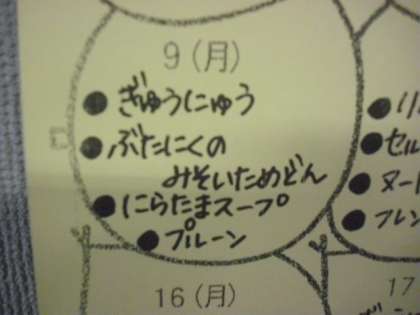 9(月)
●ぎゅうにゅう
●ぶたにくの
みそいためどん
●にらたまスープ
●プルーン
16(月)
17